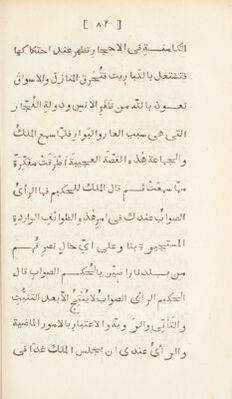 [ ٨٢ ]
الكامنة في الاحجار تظهر عند احتكاكها
فتشتعل بالنار ريت فتُحرق المنازل والاسواق
نعوذ بالله من تنافر الانس ودولة الفُجّار
التى هى سبب العار والبَوار فلمّا سمع الملكُ
والجماعة هذه القصّة العجيبة اطرقت مفكّرة
ممّا سمعَتْ ثم قال الملك للحكيم فما الرأىُ
الصوابُ عندك فى امرِ هذه الطوائف الواردة
المستجيرة بنا وعلى اىّ حالٍ نصرفهم
من بلدنا راضين بالحُكم الصواب قال
الحكيم الرأىُ الصوابُ لا يُنْتِجُ الّا بعد التثبّت
والتأنّى والرويّة والاعتبار بالامور الماضية
والرأىُ عندى ان يجلس الملك غدًا فى